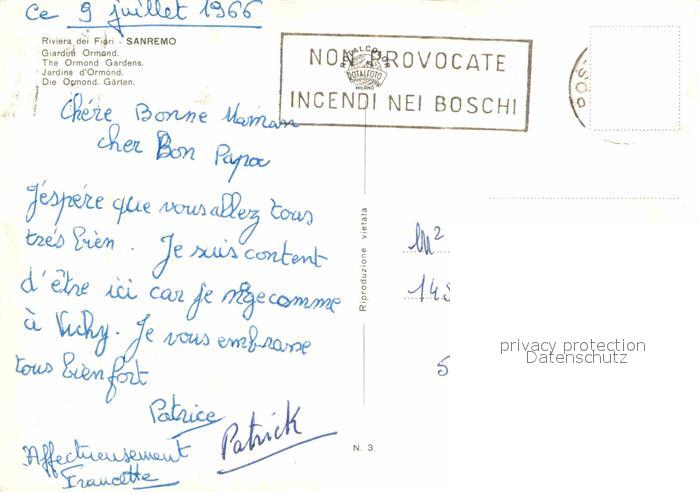 ce 9 juillet 1966
Riviera dei Fiori - SANREMO
Giardini Ormond.
The Ormond Gardens.
Jardins d'Ormond.
Die Ormond Gärten.
NON PROVOCATE
INCENDI NEI BOSCHI
ROTALCOLOR
ROTALFOTO
MILANO
Chére Bonne Maman
cher Bon Papa
J'éspére que vous allez tous
trés bien. Je suis content
d'être ici car je nage comme
à Vichy. Je vous embrasse
tous bien fort
Patrice
Patrick
Affectueusement
Francette
Riproduzione vietata
N. 3
145
5
privacy protection
Datenschutz